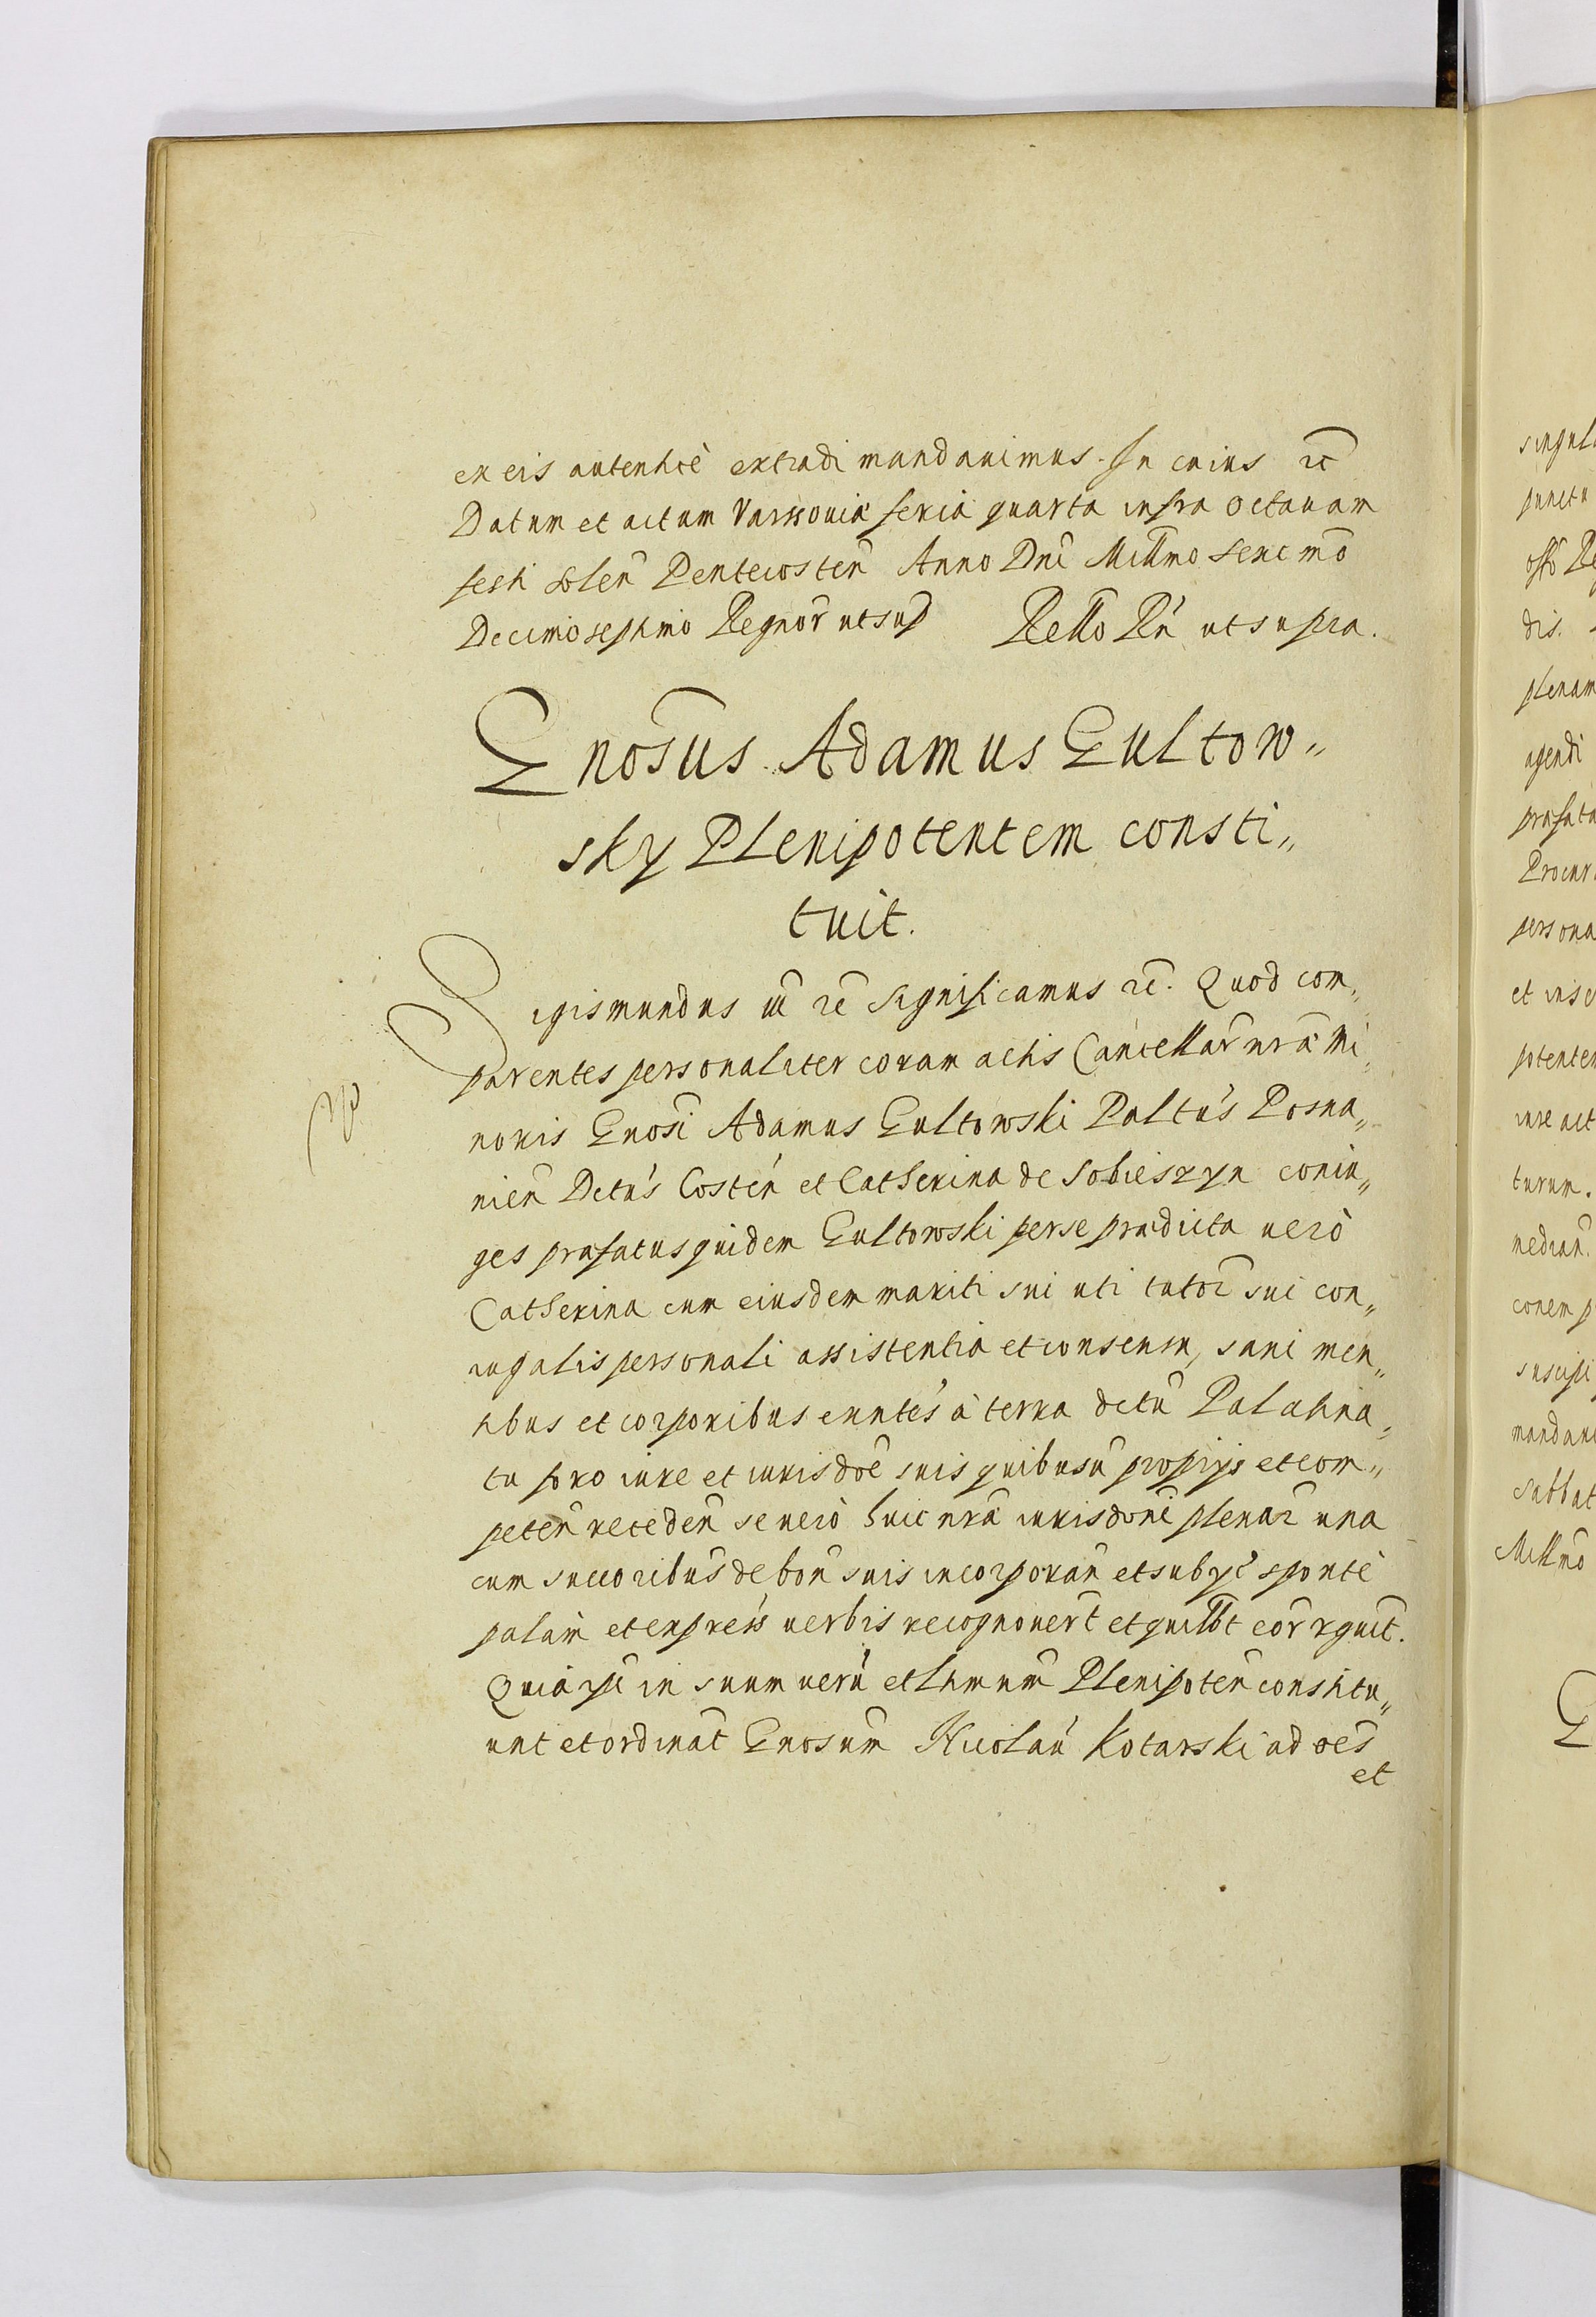 ex eis autenticè extradi mandauimus. In cuius rc̃
Datum et actum Varssouiæ feria quarta infra octauam
festi solen̄ Pentecosten̄ Anno Dnī Millmo Sexcmō
Decimoseptimo Regnor̄ ut sup̄ Rello Rn̄ ut supra.
Gnōsus Adamus Gultow„
sky Plenipotentem consti„
tuit.
Sigismundus iii rc̄ Significamus rc̄. Quod com„
parentes personaliter coram actis Cancellar̄ nræ Mi„
noris Gnosī Adamus Gultowski Paltūs Posna„
nien̄ Dctūs Costen̄ et Catherina de Sobieszyn coniu„
ges præfatus quidem Gultowski per se prædicta uerò
Catherina cum eiusdem mariti sui uti tutor̄ sui con„
iugalis personali assistentia et consensu, sani men„
tibus et corporibus exntēs à terra dctū Palatina„
tu foro iure et iurisdōē suis quibusū proprijs et com„
peten̄ receden̄ se uerò huic nræ iurisdōni plenar̄ una
cum succoribūs de bon̄ suis incorporan̄ et subÿc̄ spontè
palàm et expreīs uerbis recognouert̄ et quilbt̄ eor̄ rguit̄.
Quia ipī in suum uerū et ltimum̄ Plenipoten̄ constitu„
unt et ordinat̄ Gnosum̄ Nicolaū Kotarski ad oēs
et
singul
punctu
plenam
agendi
præfata
Procur
persona
potentem
turum.
conem p
suscipi
Sabbat
Millmō